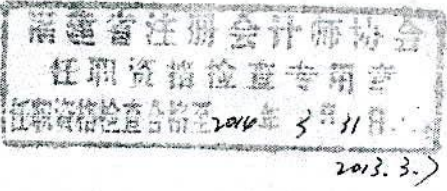 福建省注册会计师协会
任职资格检查专用章
任职资格检查合格至2014年3月31日
2013.3.7